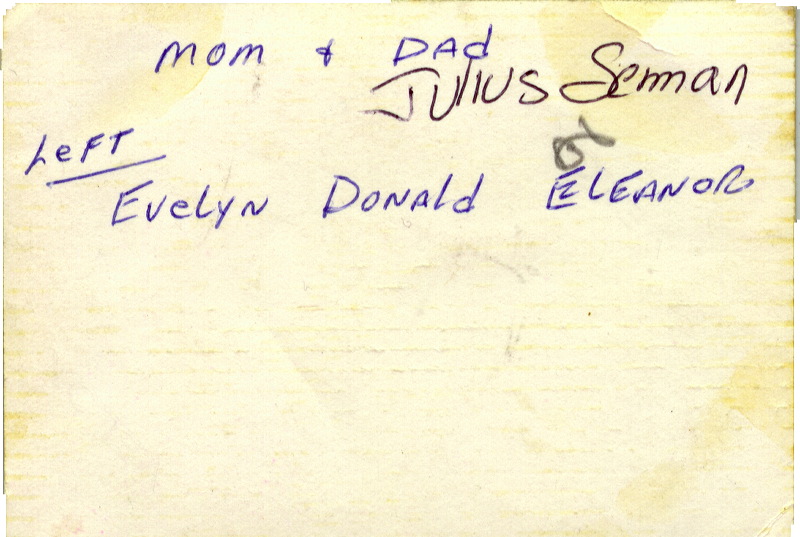 Mom & DAd
JULIUS Serman
LeFT
Evelyn Donald ELEANOR